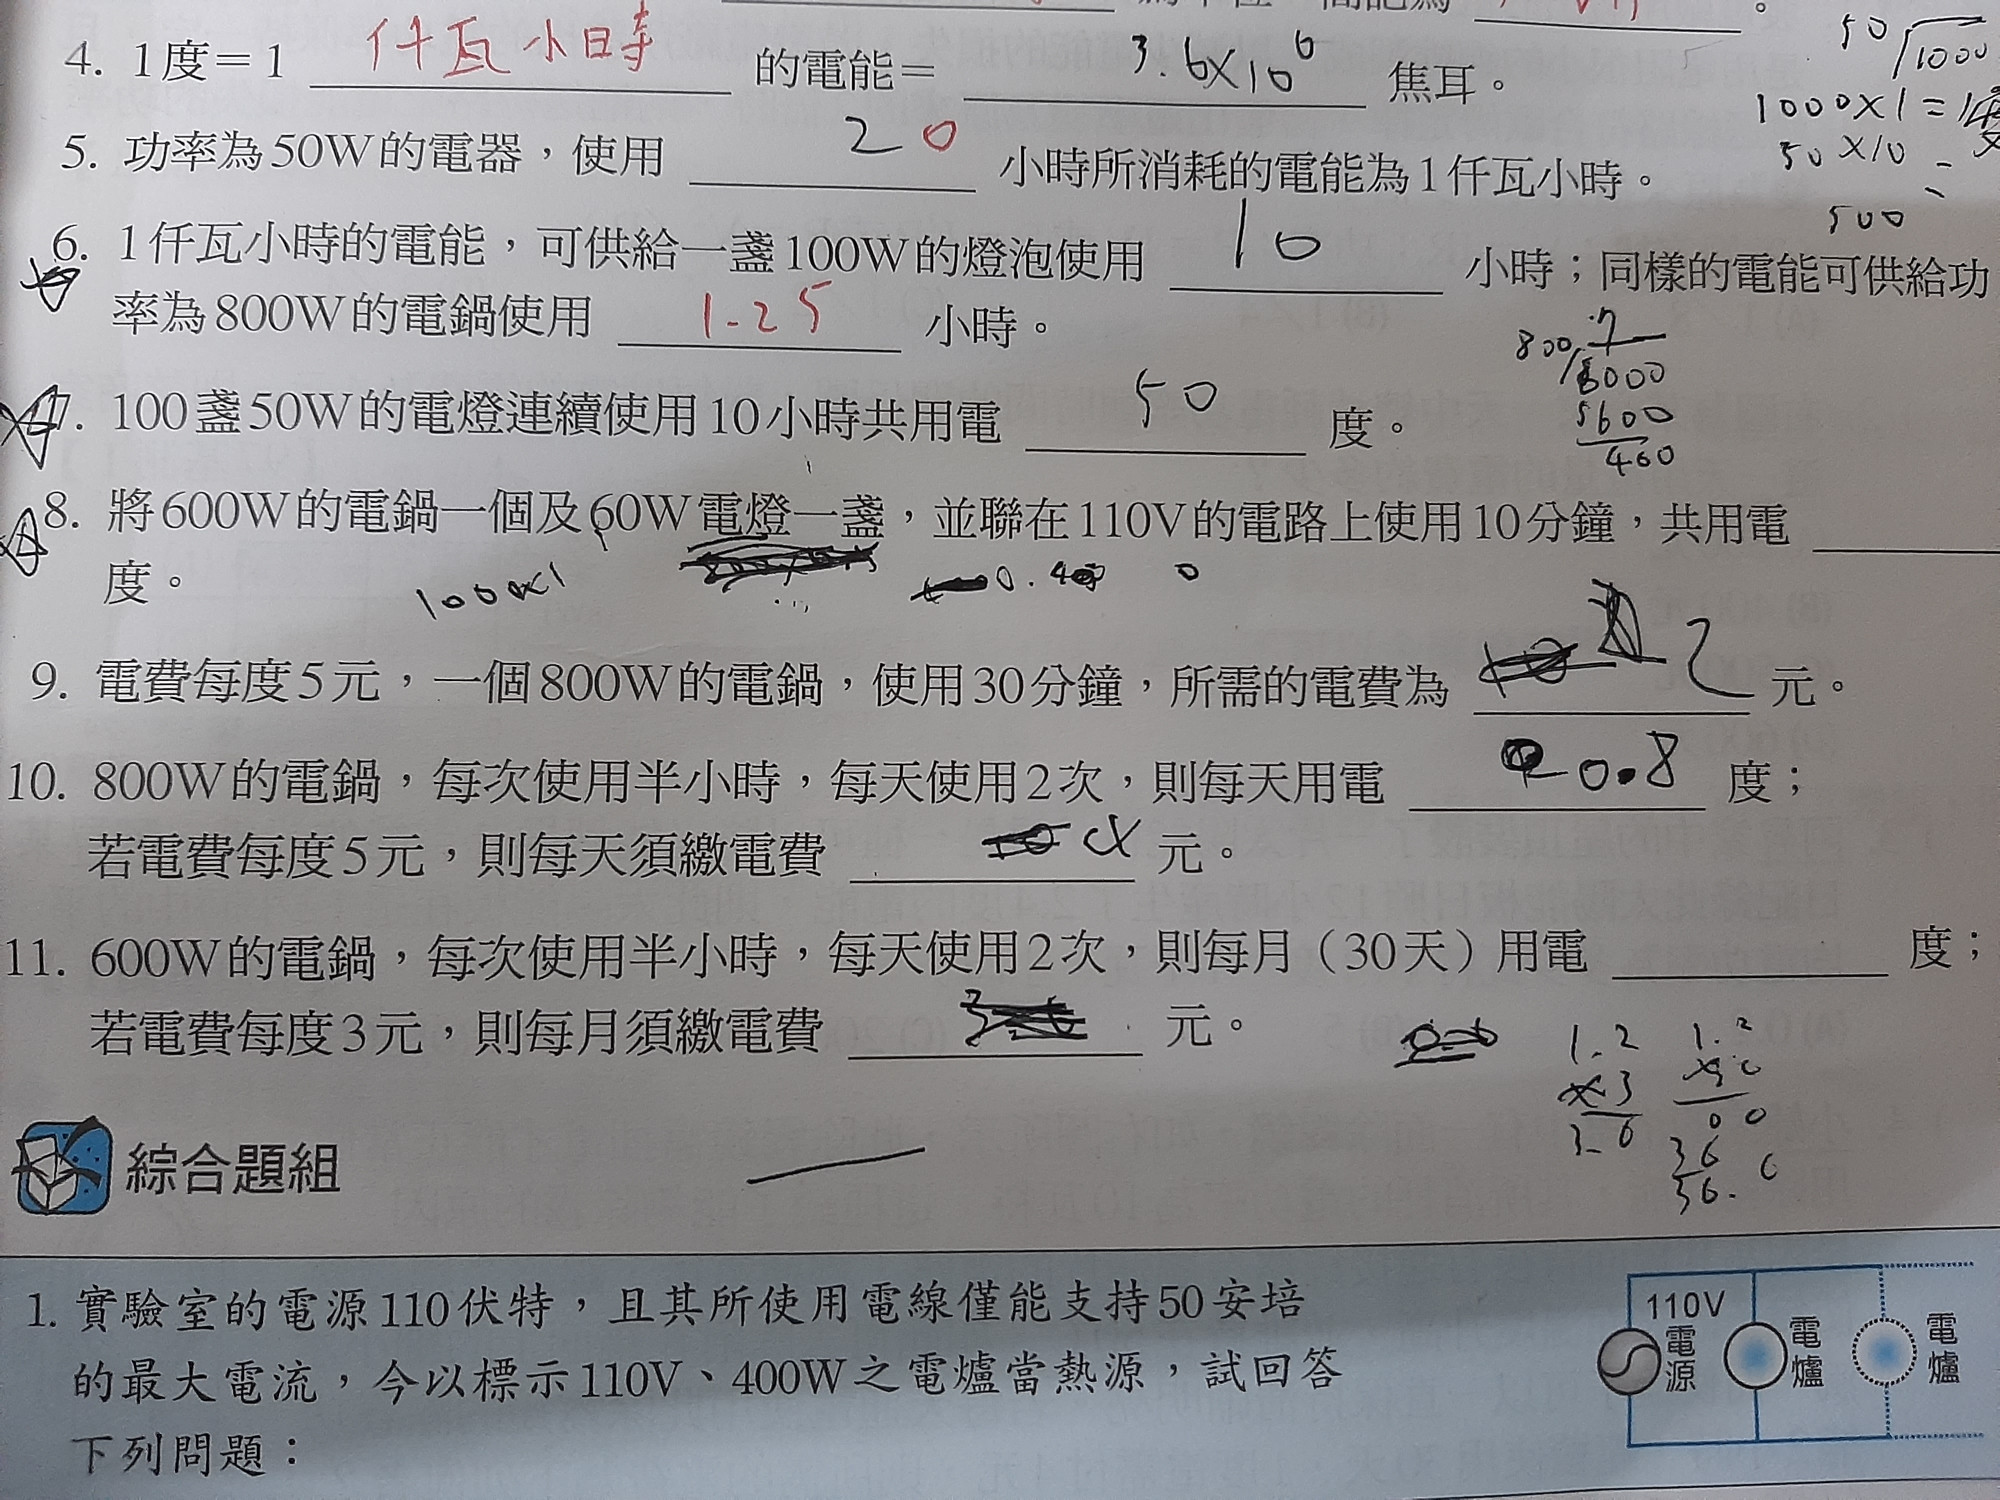 50
1000
4. 1度＝1 仟瓦小時 的電能＝ 3.6×10⁶ 焦耳。
1000×1＝1度
5. 功率為50W的電器，使用 20 小時所消耗的電能為1仟瓦小時。
50×10＝
500
6. 1仟瓦小時的電能，可供給一盞100W的燈泡使用 10 小時；同樣的電能可供給功
率為800W的電鍋使用 1.25 小時。
800
5600
400
7. 100盞50W的電燈連續使用10小時共用電 50 度。
8. 將600W的電鍋一個及60W電燈一盞，並聯在110V的電路上使用10分鐘，共用電
度。
1000×1
9. 電費每度5元，一個800W的電鍋，使用30分鐘，所需的電費為 2 元。
10. 800W的電鍋，每次使用半小時，每天使用2次，則每天用電 0.8 度；
若電費每度5元，則每天須繳電費 元。
11. 600W的電鍋，每次使用半小時，每天使用2次，則每月（30天）用電 度；
若電費每度3元，則每月須繳電費 元。
1.2 1.2
×3
3.6
36
36.0
綜合題組
1. 實驗室的電源110伏特，且其所使用電線僅能支持50安培
的最大電流，今以標示110V、400W之電爐當熱源，試回答
下列問題：
110V
電源
電爐
電爐